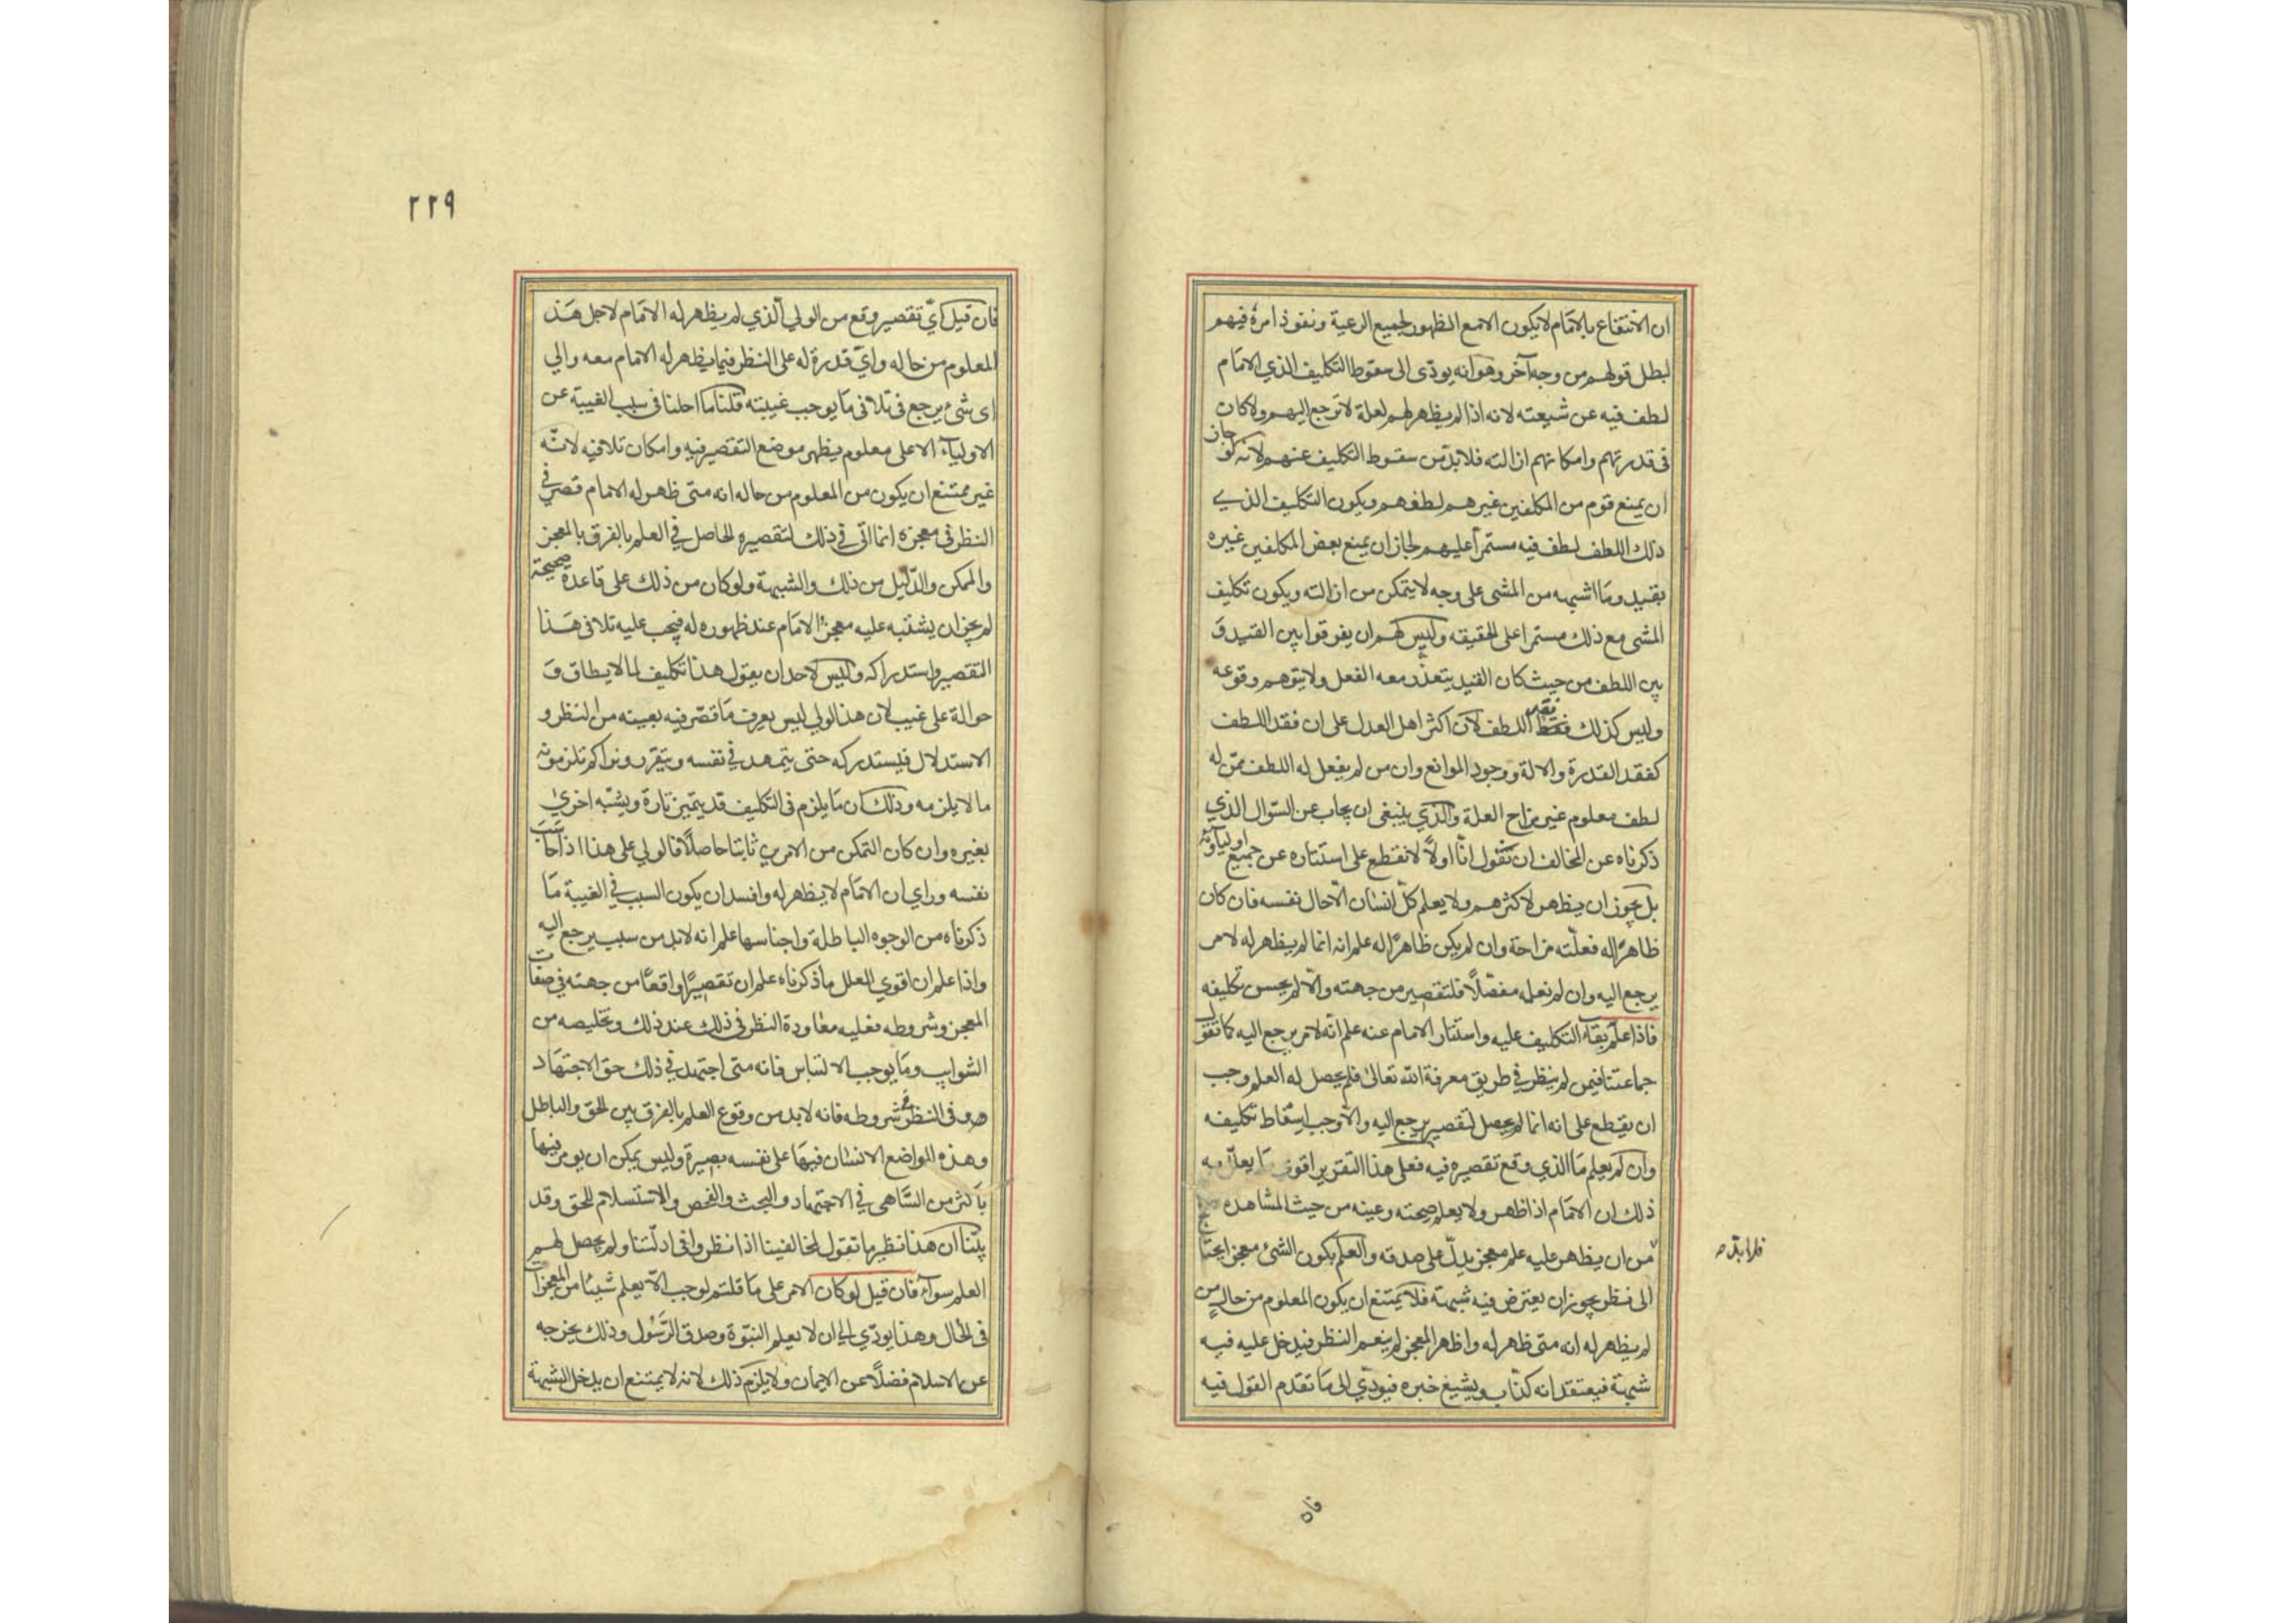 ان الانتفاع بالامام لا يكون الا مع الظهور لجميع الرعية ونفوذ امره فيهم
لبطل قولهم من وجه آخر وهو انه يودّى الى سقوط التكليف الذي الامام
لطف فيه عن شيعته لانه اذا لم يظهر لهم لعلة لا ترجع اليهم ولا كان
فى قدرتهم وامكانهم ازالته فلا بدّ من سقوط التكليف عنهم لانه لو جاز
ان يمنع قوم من المكلفين غيرهم لطفهم ويكون التكليف الذي
ذلك اللطف لطف فيه مستمرا عليهم لجاز ان يمنع بعض المكلفين غيره
بقيد وما اشبهه من المشى على وجه لا يتمكن من ازالته ويكون تكليف
المشى مع ذلك مستمرا على الحقيقه وليس لهم ان يفرقوا بين القيد و
بين اللطف من حيث كان القيد يتعذر معه الفعل ولا يتوهم وقوعه
وليس كذلك فقد اللطف لان اكثر اهل العدل على ان فقد اللطف
كفقد القدرة والالة ووجود الموانع وان من لم يفعل له اللطف ممّن له
لطف معلوم غير مزاح العلة والذي ينبغى ان يجاب عن السّوال الذي
ذكرناه عن المخالف ان نقول انّا اولاً لا نقطع على استتاره عن جميع اوليآئه
بل يجوز ان يظهر لاكثرهم ولا يعلم كلّ انسان الّا حال نفسه فان كان
ظاهرًا له فعلّته مزاحة وان لم يكن ظاهرًا له علم انه انما لم يظهر له لامر
يرجع اليه وان لم نعلمه مفصّلاً فلتقصير من جهته والّا لم يحسن تكليفه
فاذا علم بقاء التكليف عليه واستتار الامام عنه علم انّه لامر يرجع اليه كما تقول
جماعتنا فيمن لم ينظر في طريق معرفة الله تعالى فلم يحصل له العلم وجب
ان يقطع على انه انما لم يحصل لتقصير يرجع اليه والّا وجب اسقاط تكليفه
وان لم يعلم ما الذي وقع تقصيره فيه فعلى هذا التقرير اقوى ما يعلّل به
ذلك ان الامام اذا ظهر ولا يعلم صحته وعينه من حيث المشاهدة
من ان يظهر عليه علم معجز يدلّ على صدقه والعلم بكون الشئ معجزا يحتاج
فلا بدّ ص
الى نظر يجوز ان يعترض فيه شبهة فلا يمتنع ان يكون المعلوم من حال من
لم يظهر له انه متى ظهر له واظهر المعجز لم ينعم النظر فيدخل عليه فيه
شبهة فيعتقد انه كذّاب ويشيع خبره فيودّي الى ما تقدم القول فيه
فان
٢٢٩
فان قيل ايّ تقصير وقع من الولي الّذي لم يظهر له الامام لاجل هذ
المعلوم من حاله وايّ قدرة له على النظر فيما يظهر له الامام معه والي
اى شئ يرجع فى تلافى ما يوجب غيبته قلنا ما احلنا فى سبب الغيبة عن
الاوليآء الا على معلوم يظهر موضع التقصير فيه وامكان تلافيه لانّه
غير ممتنع ان يكون من المعلوم من حاله انه متى ظهر له الامام قصر في
النظر فى معجزه انما اتى في ذلك لتقصيره الحاصل في العلم بالفرق بالمعجز
والممكن والدّليل من ذلك والشبهة ولو كان من ذلك على قاعدة صحيحة
لم يجز ان يشتبه عليه معجز الامام عند ظهوره له فيجب عليه تلافى هذا
التقصير واستدراكه وليس لاحد ان يقول هذا تكليف لما لا يطاق و
حوالة على غيب لان هذا لولي ليس يعرف ما قصّر فيه بعينه من النظر و
الاستدلال فيستدركه حتى يتمهد في نفسه ويتقرر ونراكم تلزمونه
ما لا يلزمه وذلك ان ما يلزم فى التكليف قد يتميز تارة ويشتبه اخرىٰ
بغيره وان كان التمكن من الامرين ثابتا حاصلاً فالولي على هذا اذا حاسب
نفسه وراي ان الامام لا يظهر له وافسد ان يكون السبب في الغيبة ما
ذكرناه من الوجوه الباطلة واجناسها علم انه لا بد من سبب يرجع اليه
واذا علم ان اقوي العلل ما ذكرناه علم ان تقصيرًا واقعًا من جهته في صفات
المعجز وشروطه فعليه معاودة النظر فى ذلك عند ذلك وتخليصه من
الشوايب وما يوجب الالتباس فانه متى اجتهد في ذلك حق الاجتهاد
ووفى النظر شروطه فانه لا بد من وقوع العلم بالفرق بين الحق والباطل
وهذه المواضع الانسان فيها على نفسه بصيرة وليس يمكن ان يومر فيها
باكثر من التناهى في الاجتهاد والبحث والفحص والاستسلام للحق وقد
بيّنا ان هذا نظير ما تقول لمخالفينا اذا نظروا فى ادلّتنا ولم يحصل لهم
العلم سوآء فان قيل لو كان الامر على ما قلتم لوجب الّا يعلم شيئا من المعجزات
فى الحال وهذا يودّي الى ان لا يعلم النبوّة وصدق الرّسول وذلك يخرجه
عن الاسلام فضلاً عن الايمان ولا يلزم ذلك لانه لا يمتنع ان يدخل الشبهة